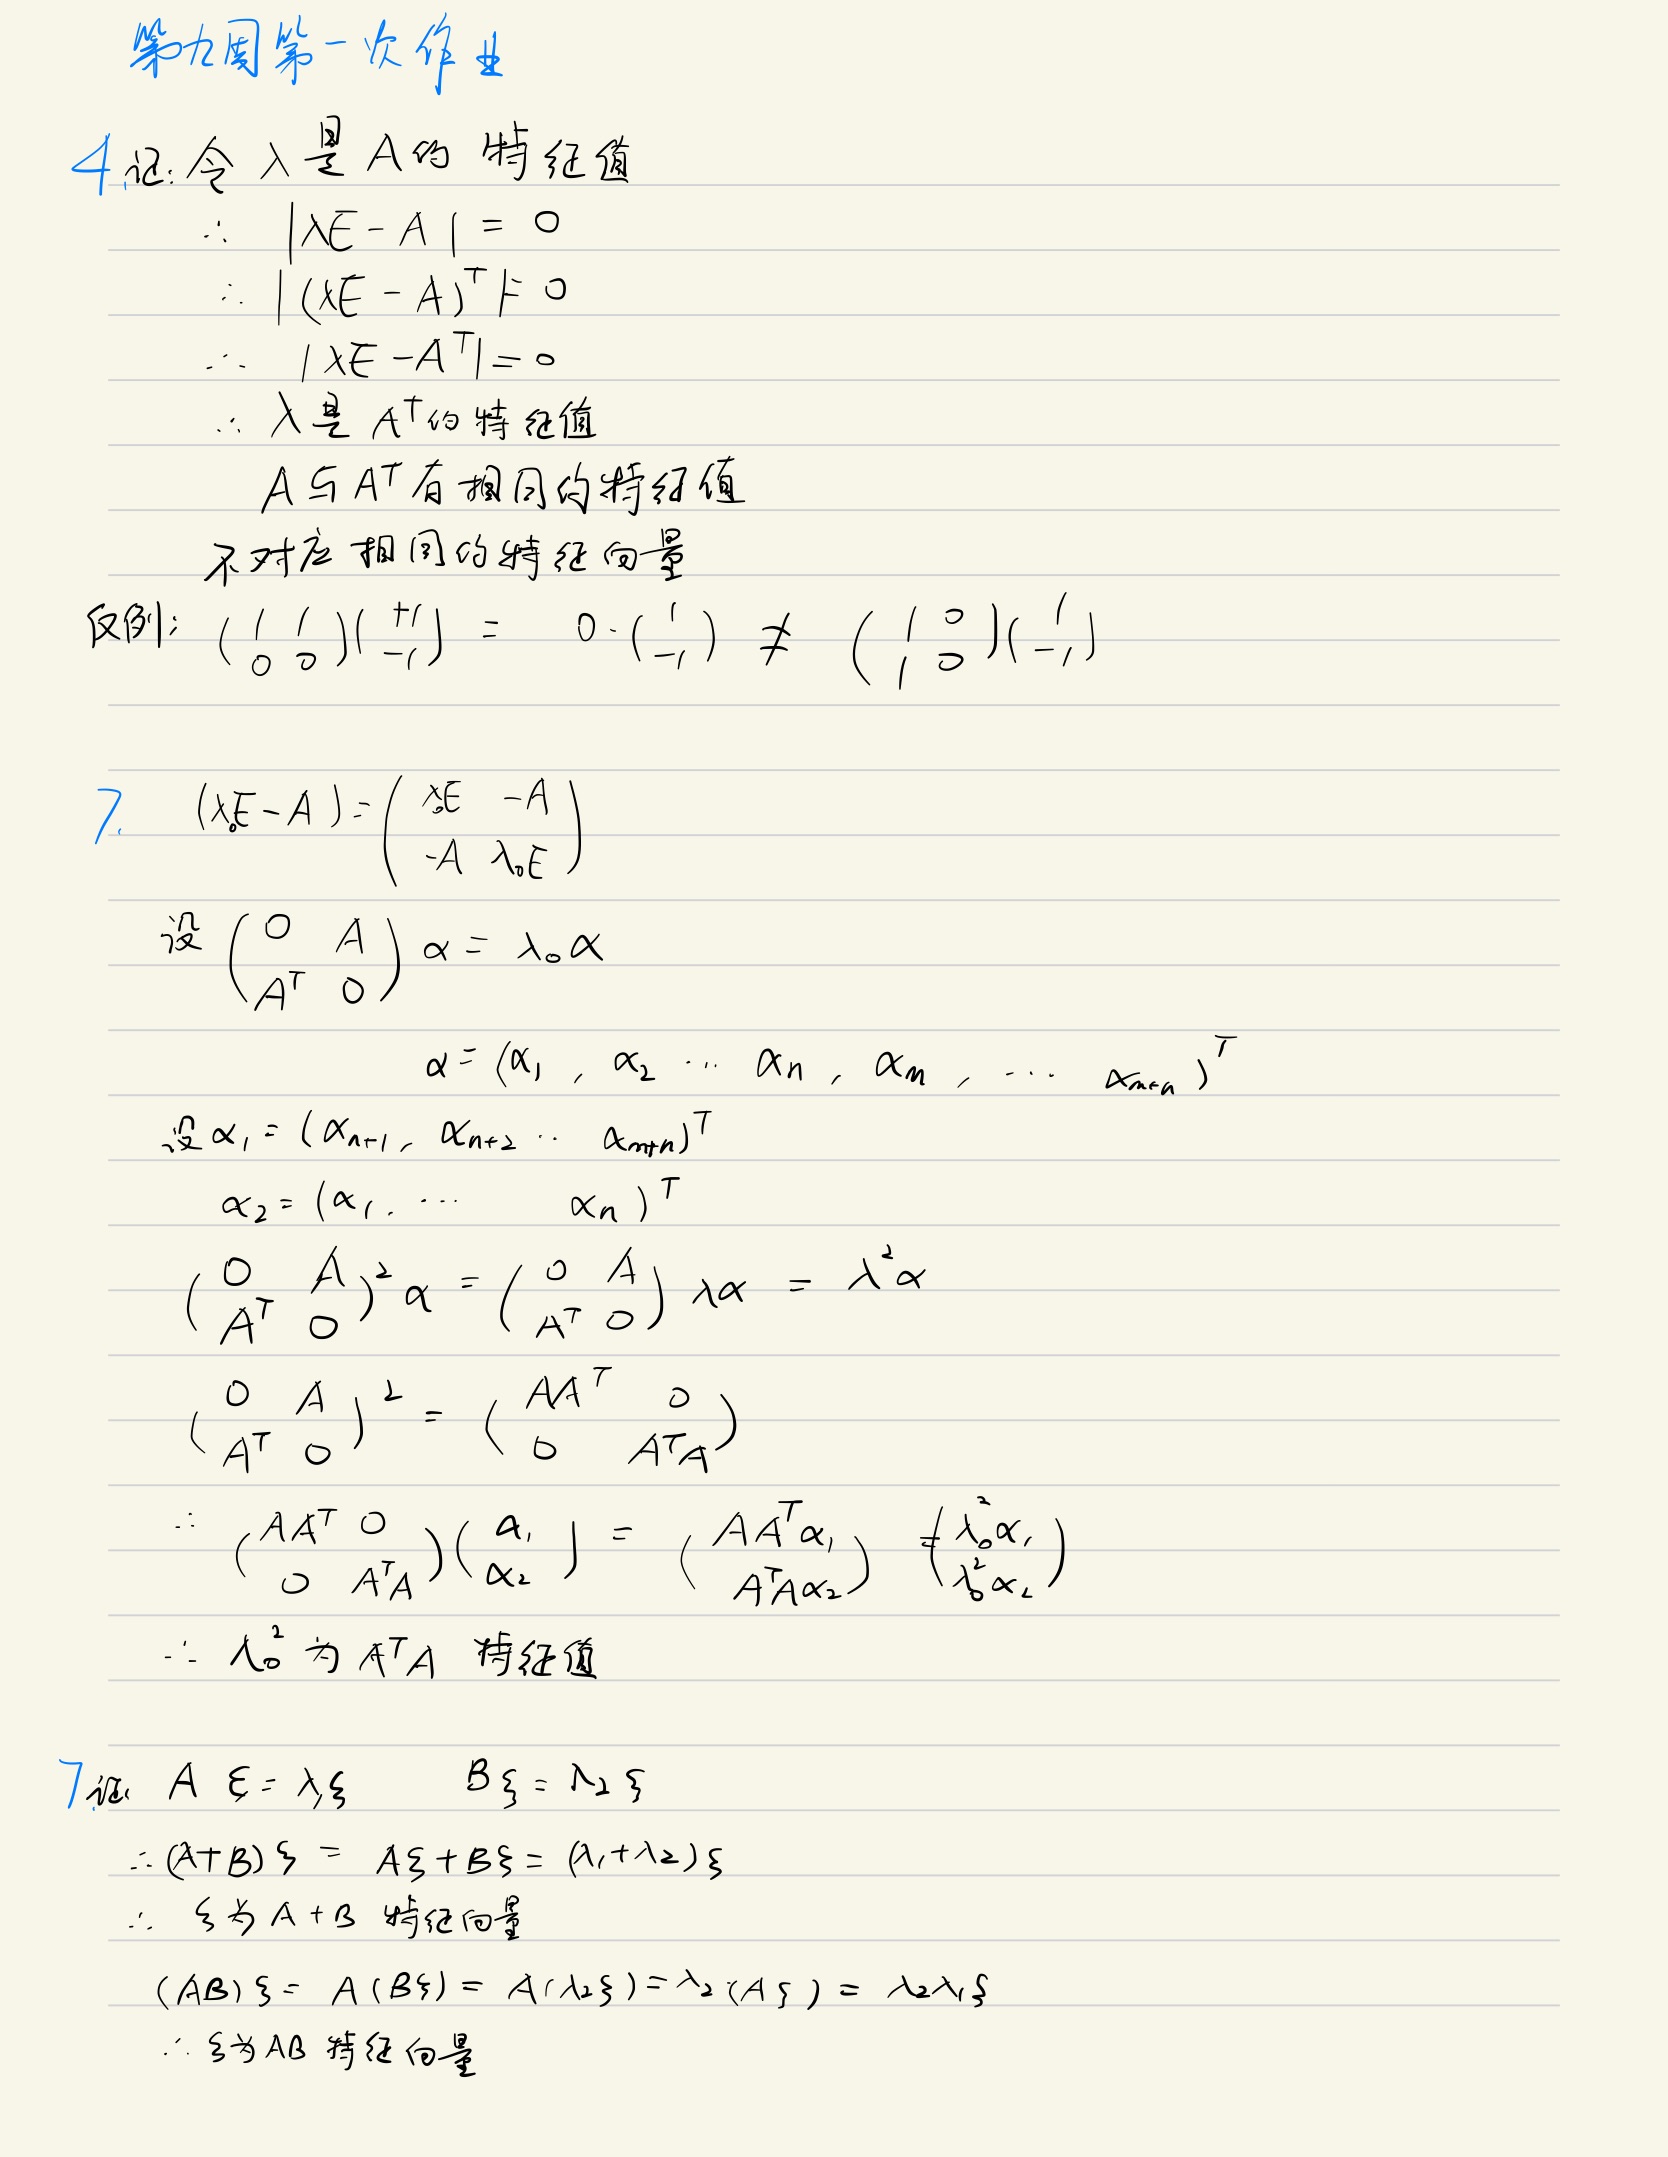 第九周第一次作业
4.证:令 λ是A的 特征值
∴ |λE-A| = 0
∴ |(λE-A)ᵀ|= 0
∴ |λE-Aᵀ|=0
∴ λ是 Aᵀ的特征值
A与Aᵀ有相同的特征值
不对应相同的特征向量
反例: (1 1; 0 0)(+1; -1) = 0·(1; -1) ≠ (1 0; 1 0)(1; -1)
7. (λ₀E-A)=(λ₀E -A; -A λ₀E)
设 (0 A; Aᵀ 0) α = λ₀α
α=(α₁, α₂ ··· αn, αm, ··· αm+n)ᵀ
设α₁=(αn+1, αn+2 ·· αm+n)ᵀ
α₂=(α₁. ··· αn)ᵀ
(0 A; Aᵀ 0)²α = (0 A; Aᵀ 0) λα = λ²α
(0 A; Aᵀ 0)² = (AAᵀ 0; 0 AᵀA)
∴ (AAᵀ 0; 0 AᵀA)(α₁; α₂) = (AAᵀα₁; AᵀAα₂) =(λ₀²α₁; λ₀²α₂)
∴ λ₀² 为 AᵀA 特征值
7.证: Aξ=λ₁ξ Bξ=λ₂ξ
∴(A+B)ξ = Aξ+Bξ=(λ₁+λ₂)ξ
∴ ξ为A+B 特征向量
(AB)ξ= A(Bξ)= A(λ₂ξ)=λ₂(Aξ) = λ₂λ₁ξ
∴ ξ为AB 特征向量